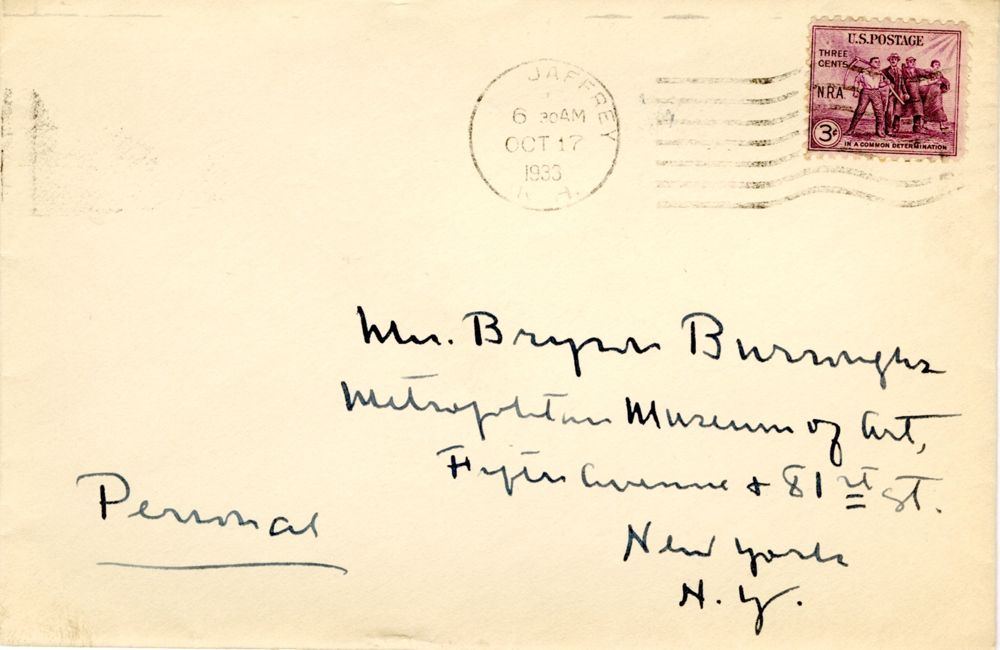 U.S.POSTAGE
THREE
CENTS
NRA
3¢
IN A COMMON DETERMINATION
JAFFREY
6 30AM
OCT 17
1933
N. H.
Mr. Bryson Burroughs
Metropolitan Museum of Art,
Fifth Avenue & 81st St.
New York
N. Y.
Personal